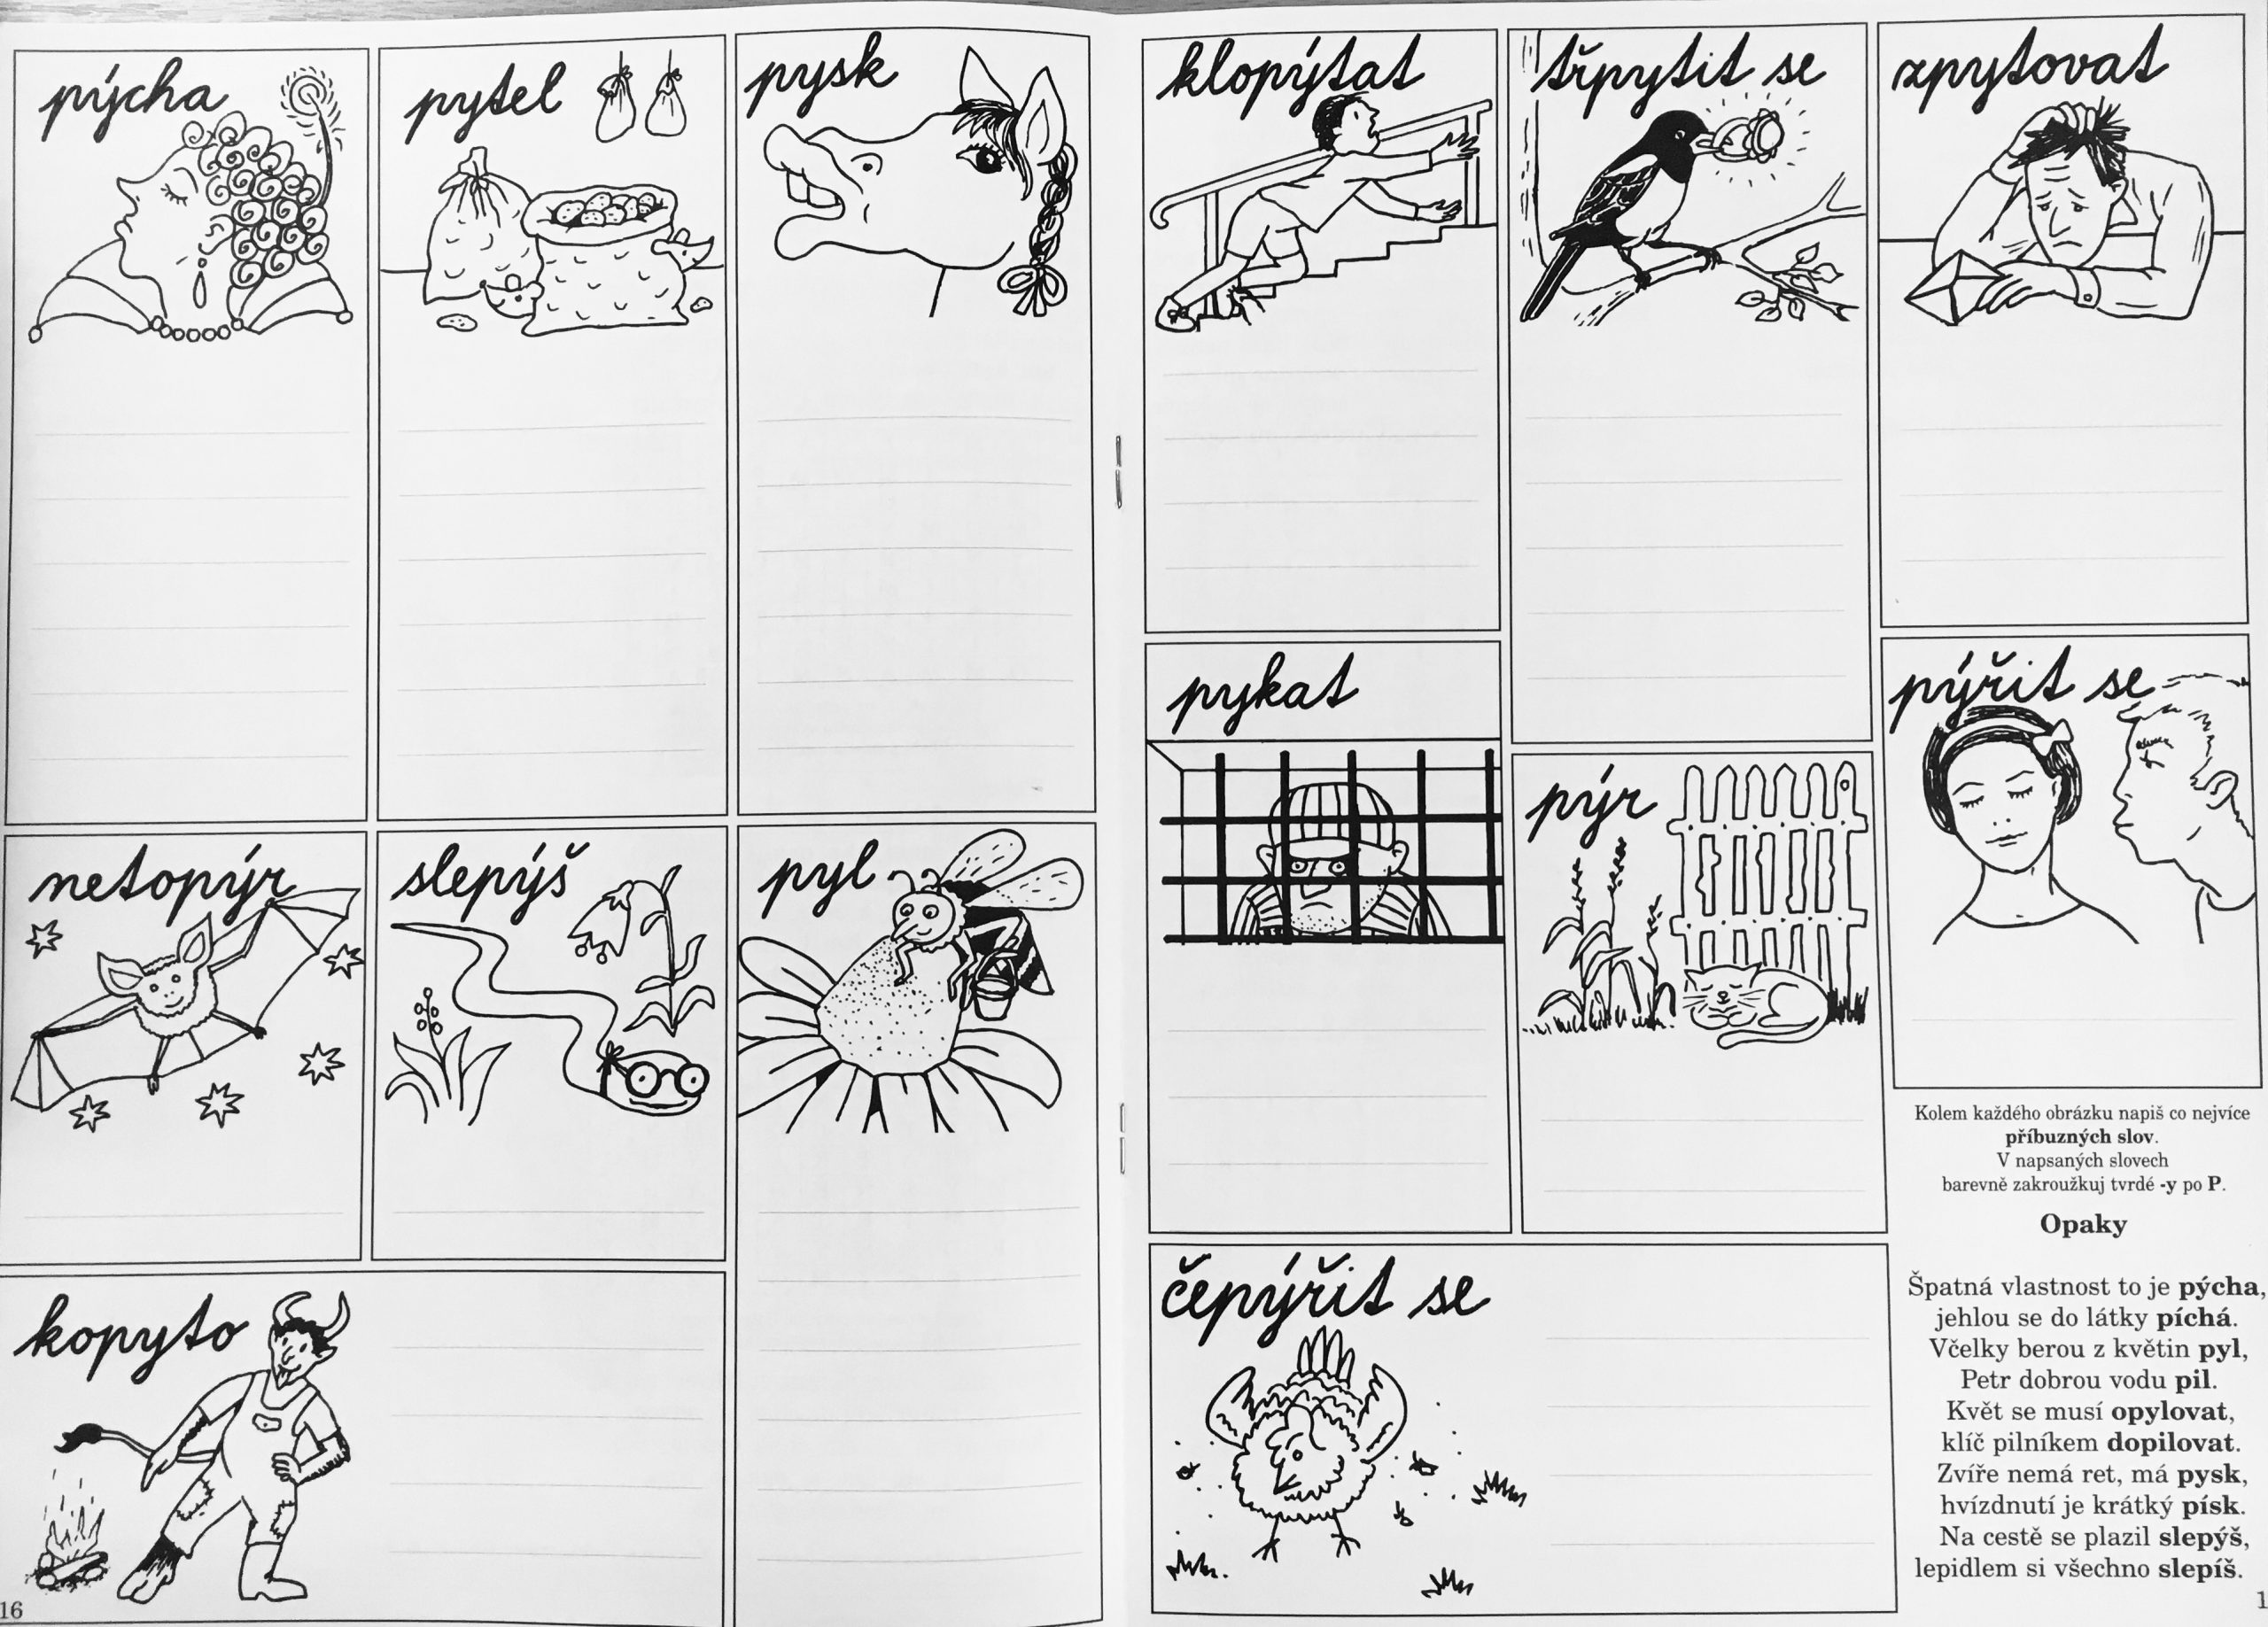 pýcha
pytel
pysk
netopýr
slepýš
pyl
kopyto
16
klopýtat
třpytit se
zpytovat
pykat
pýr
pýřit se
čepýřit se
Kolem každého obrázku napiš co nejvíce
příbuzných slov.
V napsaných slovech
barevně zakroužkuj tvrdé -y po P.
Opaky
Špatná vlastnost to je pýcha,
jehlou se do látky píchá.
Včelky berou z květin pyl,
Petr dobrou vodu pil.
Květ se musí opylovat,
klíč pilníkem dopilovat.
Zvíře nemá ret, má pysk,
hvízdnutí je krátký písk.
Na cestě se plazil slepýš,
lepidlem si všechno slepíš.
1